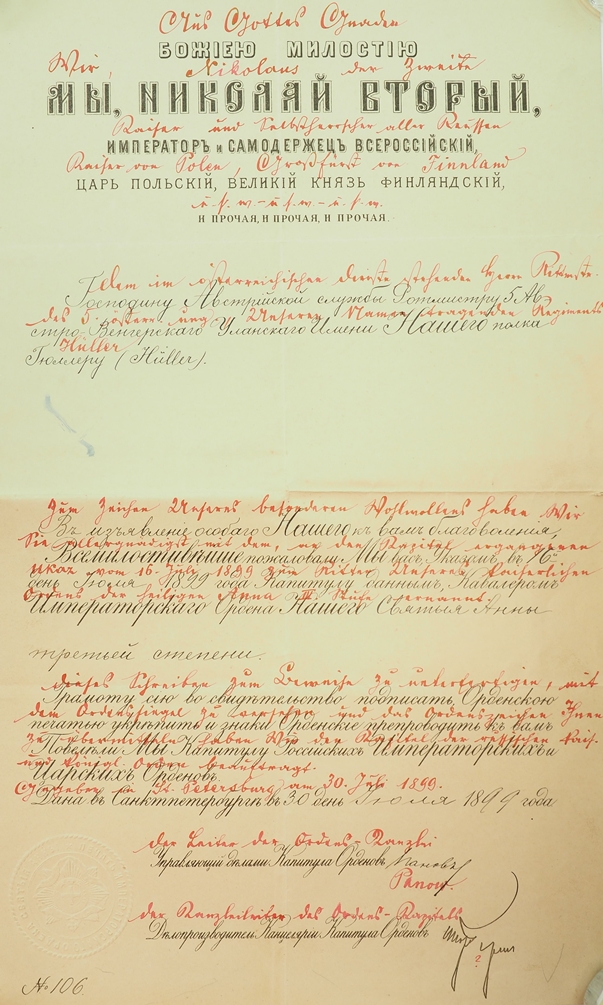 Aus Gottes Gnaden
БОЖІЕЮ МИЛОСТІЮ
Wir, Nikolaus der Zweite
МЫ, НИКОЛАЙ ВТОРЫЙ,
Kaiser und Selbstherrscher aller Reussen
ИМПЕРАТОРЪ и САМОДЕРЖЕЦЪ ВСЕРОССІЙСКІЙ,
Kaiser von Polen, Großfürst von Finnland
ЦАРЬ ПОЛЬСКІЙ, ВЕЛИКІЙ КНЯЗЬ ФИНЛЯНДСКІЙ,
u. s. w. – u. s. w. – u. s. w.
И ПРОЧАЯ, И ПРОЧАЯ, И ПРОЧАЯ.
Dem im österreichischen Dienste stehenden Herrn Rittmstr.
Господину Австрійской службы Ротмистру 5 Ав-
des 5. österr. ung. Unseren Namen tragenden Regiments
стро-Венгерскаго Уланскаго Имени Нашего полка
Hüller
Гюллеру (Hüller).
Zum Zeichen Unseres besonderen Wohlwollens haben Wir
Въ изъявленіе особаго Нашего къ вамъ благоволенія,
Sie allergnädigst mit dem, an den Kapitel ergangenen
Всемилостивѣйше пожаловали Мы васъ, Указомъ, въ 16
Ukas vom 16. July 1899 zum Ritter Unseres Kaiserlichen
день Іюля 1899 года Капитулу даннымъ, Кавалеромъ
Ordens der heiligen Anna III Stufe ernannt.
Императорскаго Ордена Нашего Святыя Анны
третьей степени.
Dieses Schreiben zum Beweise zu unterfertigen, mit
Грамоту сію во свидѣтельство подписать, Орденскою
dem Ordenssiegel zu versehen und das Ordenszeichen Ihnen
печатью укрѣпить и знаки Орденскіе препроводить къ вамъ
zu übermitteln haben Wir den Kapitel der russischen Kais.
Повелѣли Мы Капитулу Россійскихъ Императорскихъ и
und Königl. Orden beauftragt.
Царскихъ Орденовъ.
Gegeben in St. Petersburg am 30. July 1899.
Дана въ Санктпетербургѣ въ 30 день Іюля 1899 года
der Leiter der Ordens-Kanzlei
Управляющій дѣлами Капитула Орденовъ Пановъ
Panow.
der Kanzleileiter des Ordens-Kapitels
Дѣлопроизводитель Канцеляріи Капитула Орденовъ
?
№ 106.